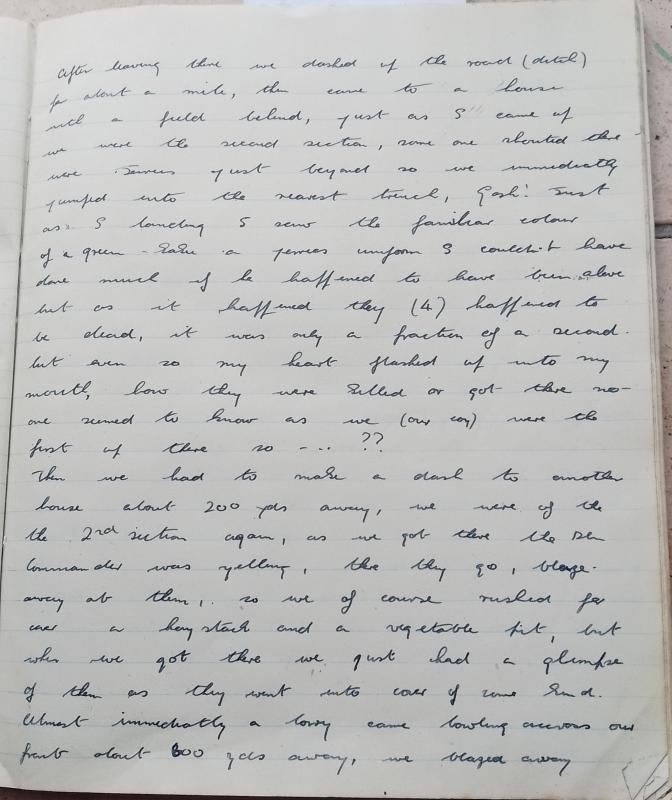 After leaving there we dashed up the road (ditch)
for about a mile, then came to a house
with a field behind, just as I came up
we were the second section, some one shouted there
were Jerries just beyond so we immediately
jumped into the nearest trench, Gosh! Just
as I landing I saw the familiar colour
of a green - a jerries uniform I couldn't have
done much if he happened to have been alive
but as it happened they (4) happened to
be dead, it was only a fraction of a second.
but even so my heart flashed up into my
mouth, how they were killed or got there no-
one seemed to know as we (our coy) were the
first up there so - . . . ??
Then we had to make a dash to another
house about 200 yds away, we were of the
the 2nd section again, as we got there the
Commander was yelling, there they go, blaze.
away at them, so we of course rushed for
cover a hay stack and a vegetable pit, but
when we got there we just had a glimpse
of them as they went into cover of some kind.
Almost immediately a lorry came bowling accross our
front about 600 yds away, we blazed away